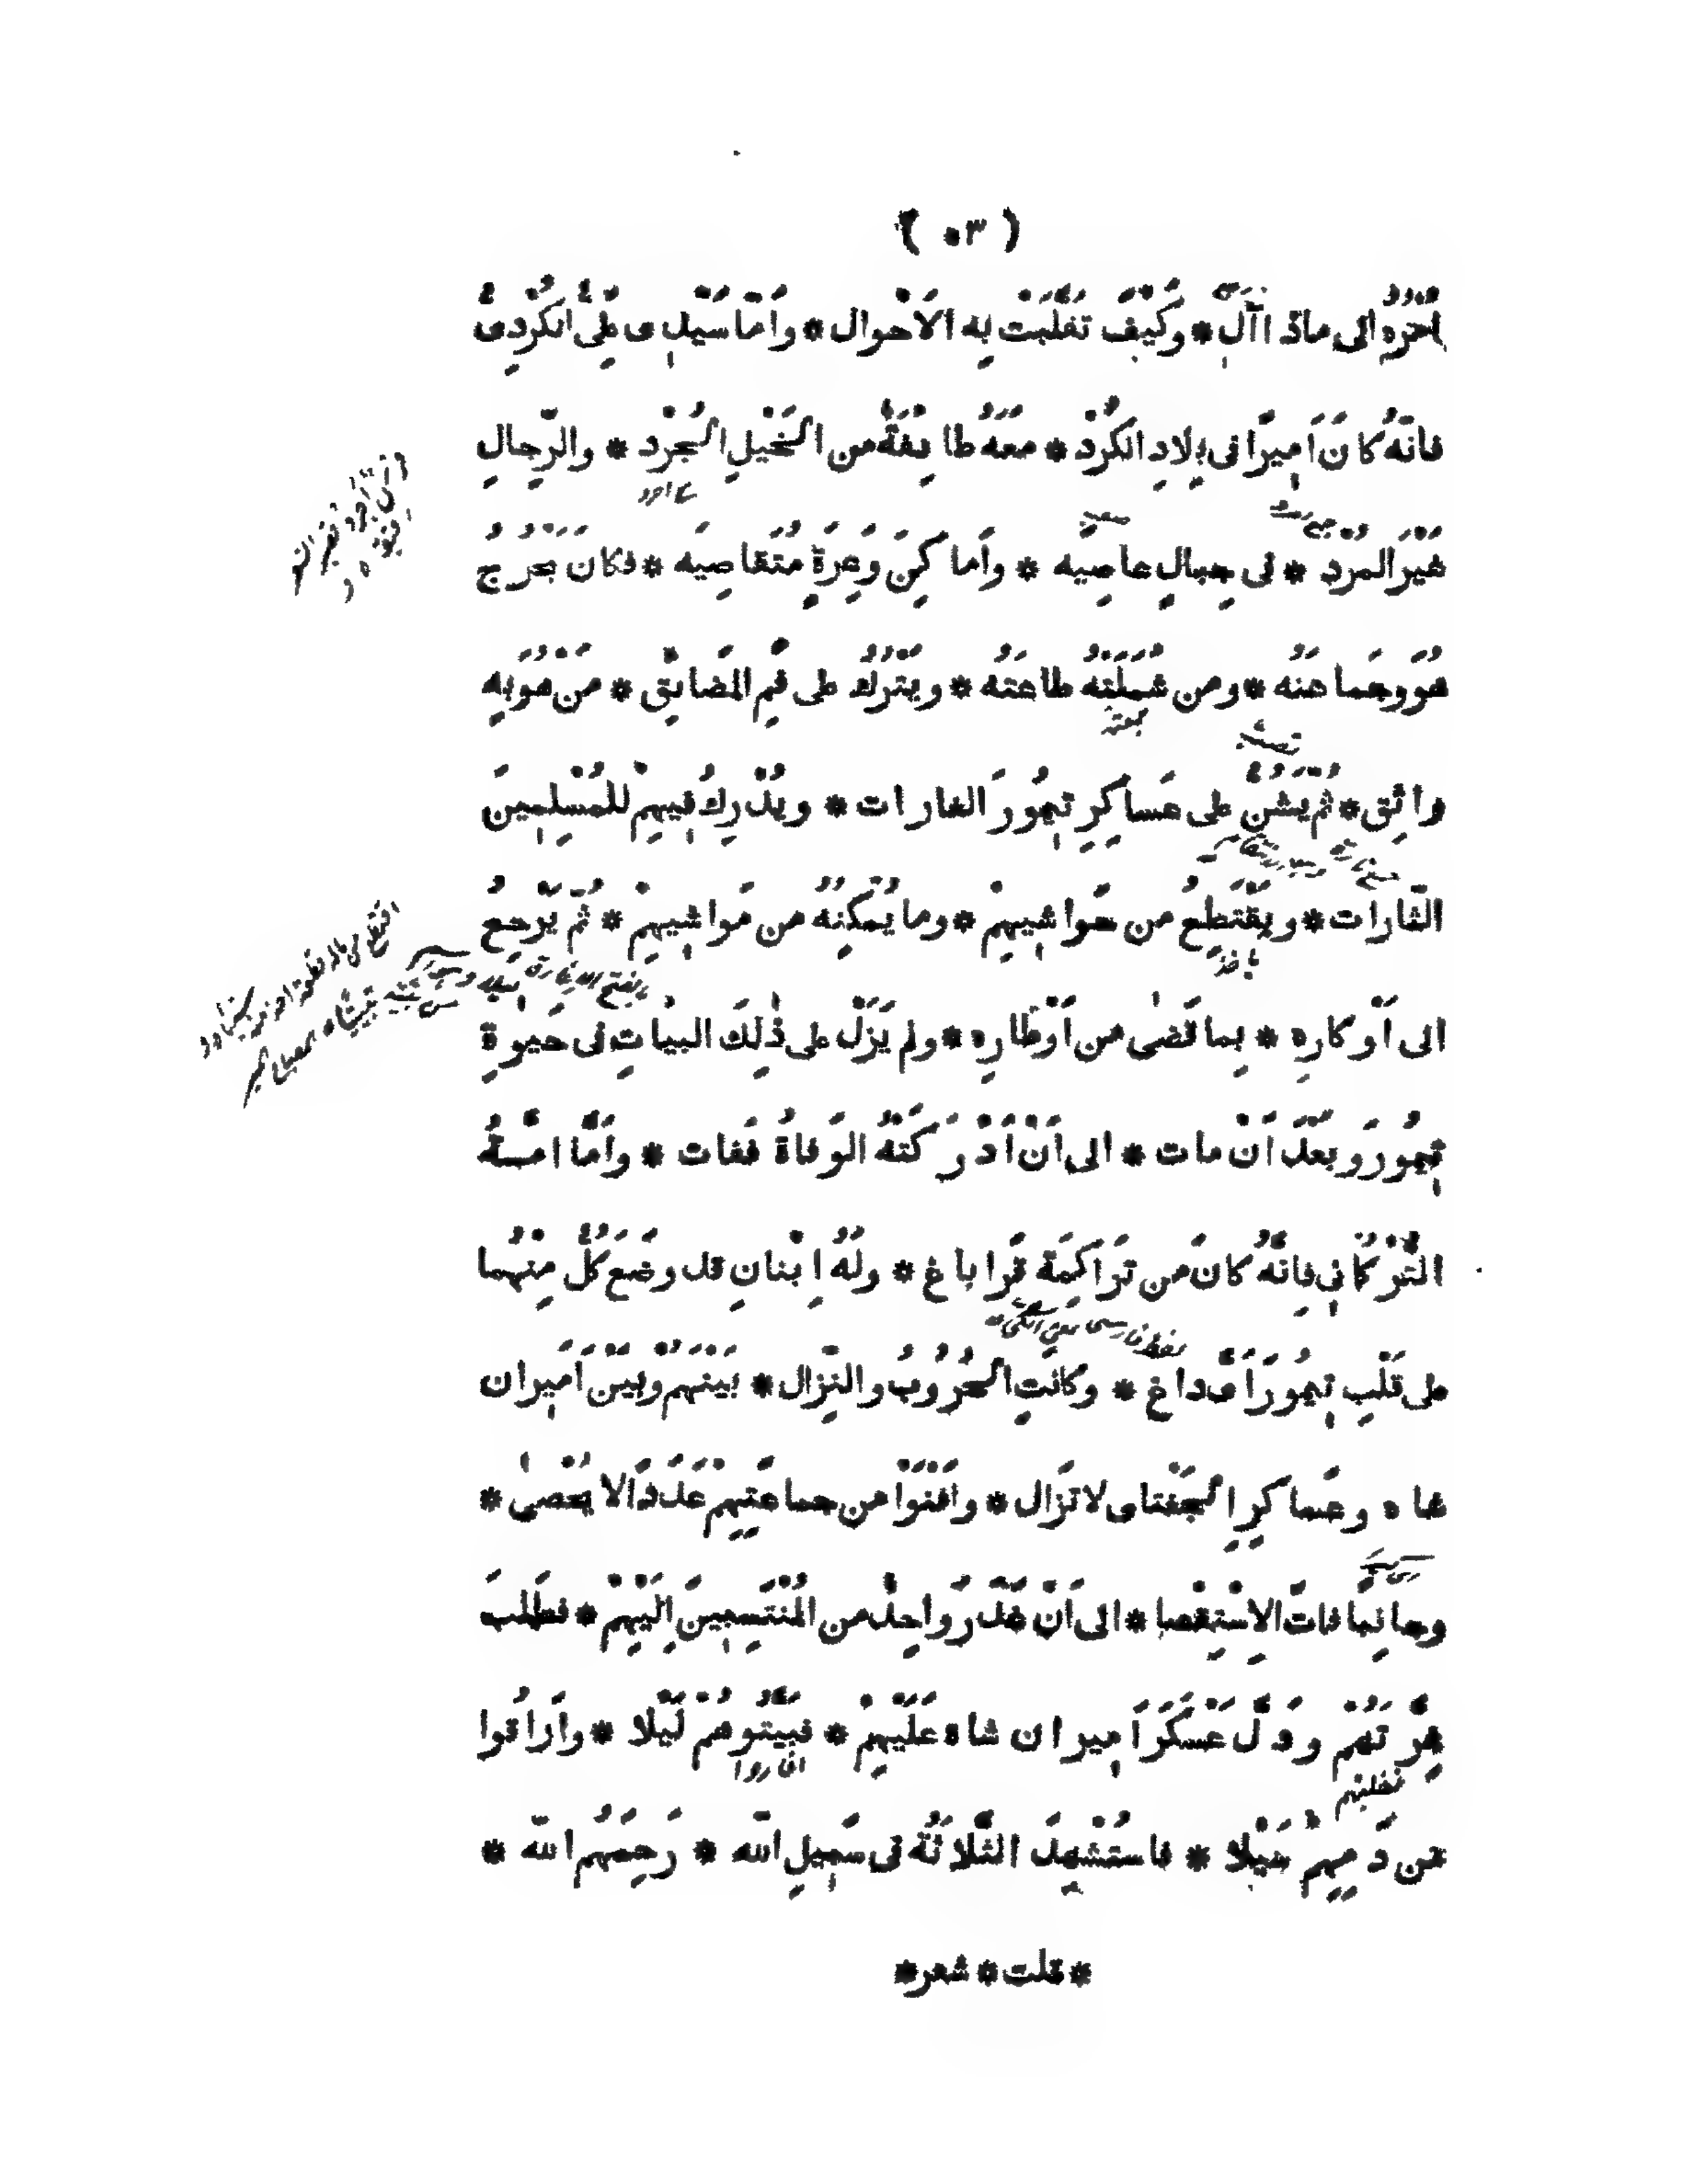 ( ٥٣ )
اَمْرُهُ الى ماذا اآلَ * وكَيْفَ تَقَلَّبَتْ بِهِ الاَحْوال * واَمّا سَيِّدى عَلِىُّ الكُرْدِىُّ
فانّهُ كانَ اَمِيرًا فى بِلادِ الكُرْد * مَعَهُ طائِفَةٌ من الخَيْلِ الجُرْد * والرِّجالِ
غَيْرَ المُرْد * فى جِبالٍ عاصِيه * واَماكِنَ وَعِرَةٍ مُتَقاصِيَه * فكانَ يَخْرُجُ
هُوَ وجَماعَتُه * ومن شَمِلَتْهُ طاعَتُه * ويَتْرُكُ على فَمِ المَضايِق * مَنْ هُوَ بِه
واثِق * ثُمّ يَشُنُّ على عَساكِرِ تِيمُورَ الغارات * ويُدْرِكُ فِيهِمْ للمُسْلِمِينَ
الثّارات * ويَقْتَطِعُ من حَواشِيهِمْ * وما يُمْكِنُهُ من مَواشِيهِمْ * ثُمّ يَرْجِعُ
الى اَوْكارِه * بِما قَضى من اَوْطارِه * ولم يَزَلْ على ذٰلِكَ البَياتِ فى حَيوةِ
تِيمُورَ وبَعْدَ اَنْ مات * الى اَنْ اَدْرَكَتْهُ الوَفاةُ فَفات * واَمّا امّتُ
التُّرْكُمانِى فانّهُ كانَ من تَراكِمَة قَرا باغ * ولَهُ اِبْنانِ قد وضَعَ كُلٌّ مِنْهُما
على قَلْبِ تِيمُورَ اَىَّ داغ * وكانَتِ الحُرُوبُ والنِّزال * بَيْنَهُمْ وبَيْنَ اَمِيران
شاه وعَساكِرِ الجَغْتاى لا تَزال * واَفْنَوْا من جَماعَتِهِمْ عَدَدًا لا يُحْصى *
وجانِبًا فاتَ الاِسْتِقْصا * الى اَنْ غَدَرَ واحِدٌ من المُنْتَسِبِينَ اِلَيْهِمْ * فطَلَبَ
غِرَّتَهُمْ ودَلَّ عَسْكَرَ اَمِيران شاه عَلَيْهِمْ * فبَيَّتُوهُمْ لَيْلا * واَراقُوا
من دَمِهِمْ سَيْلا * فاسْتُشْهِدَ الثَّلاثَةُ فى سَبِيلِ اللّه * رَحِمَهُم اللّه *
* قلت * شعر *